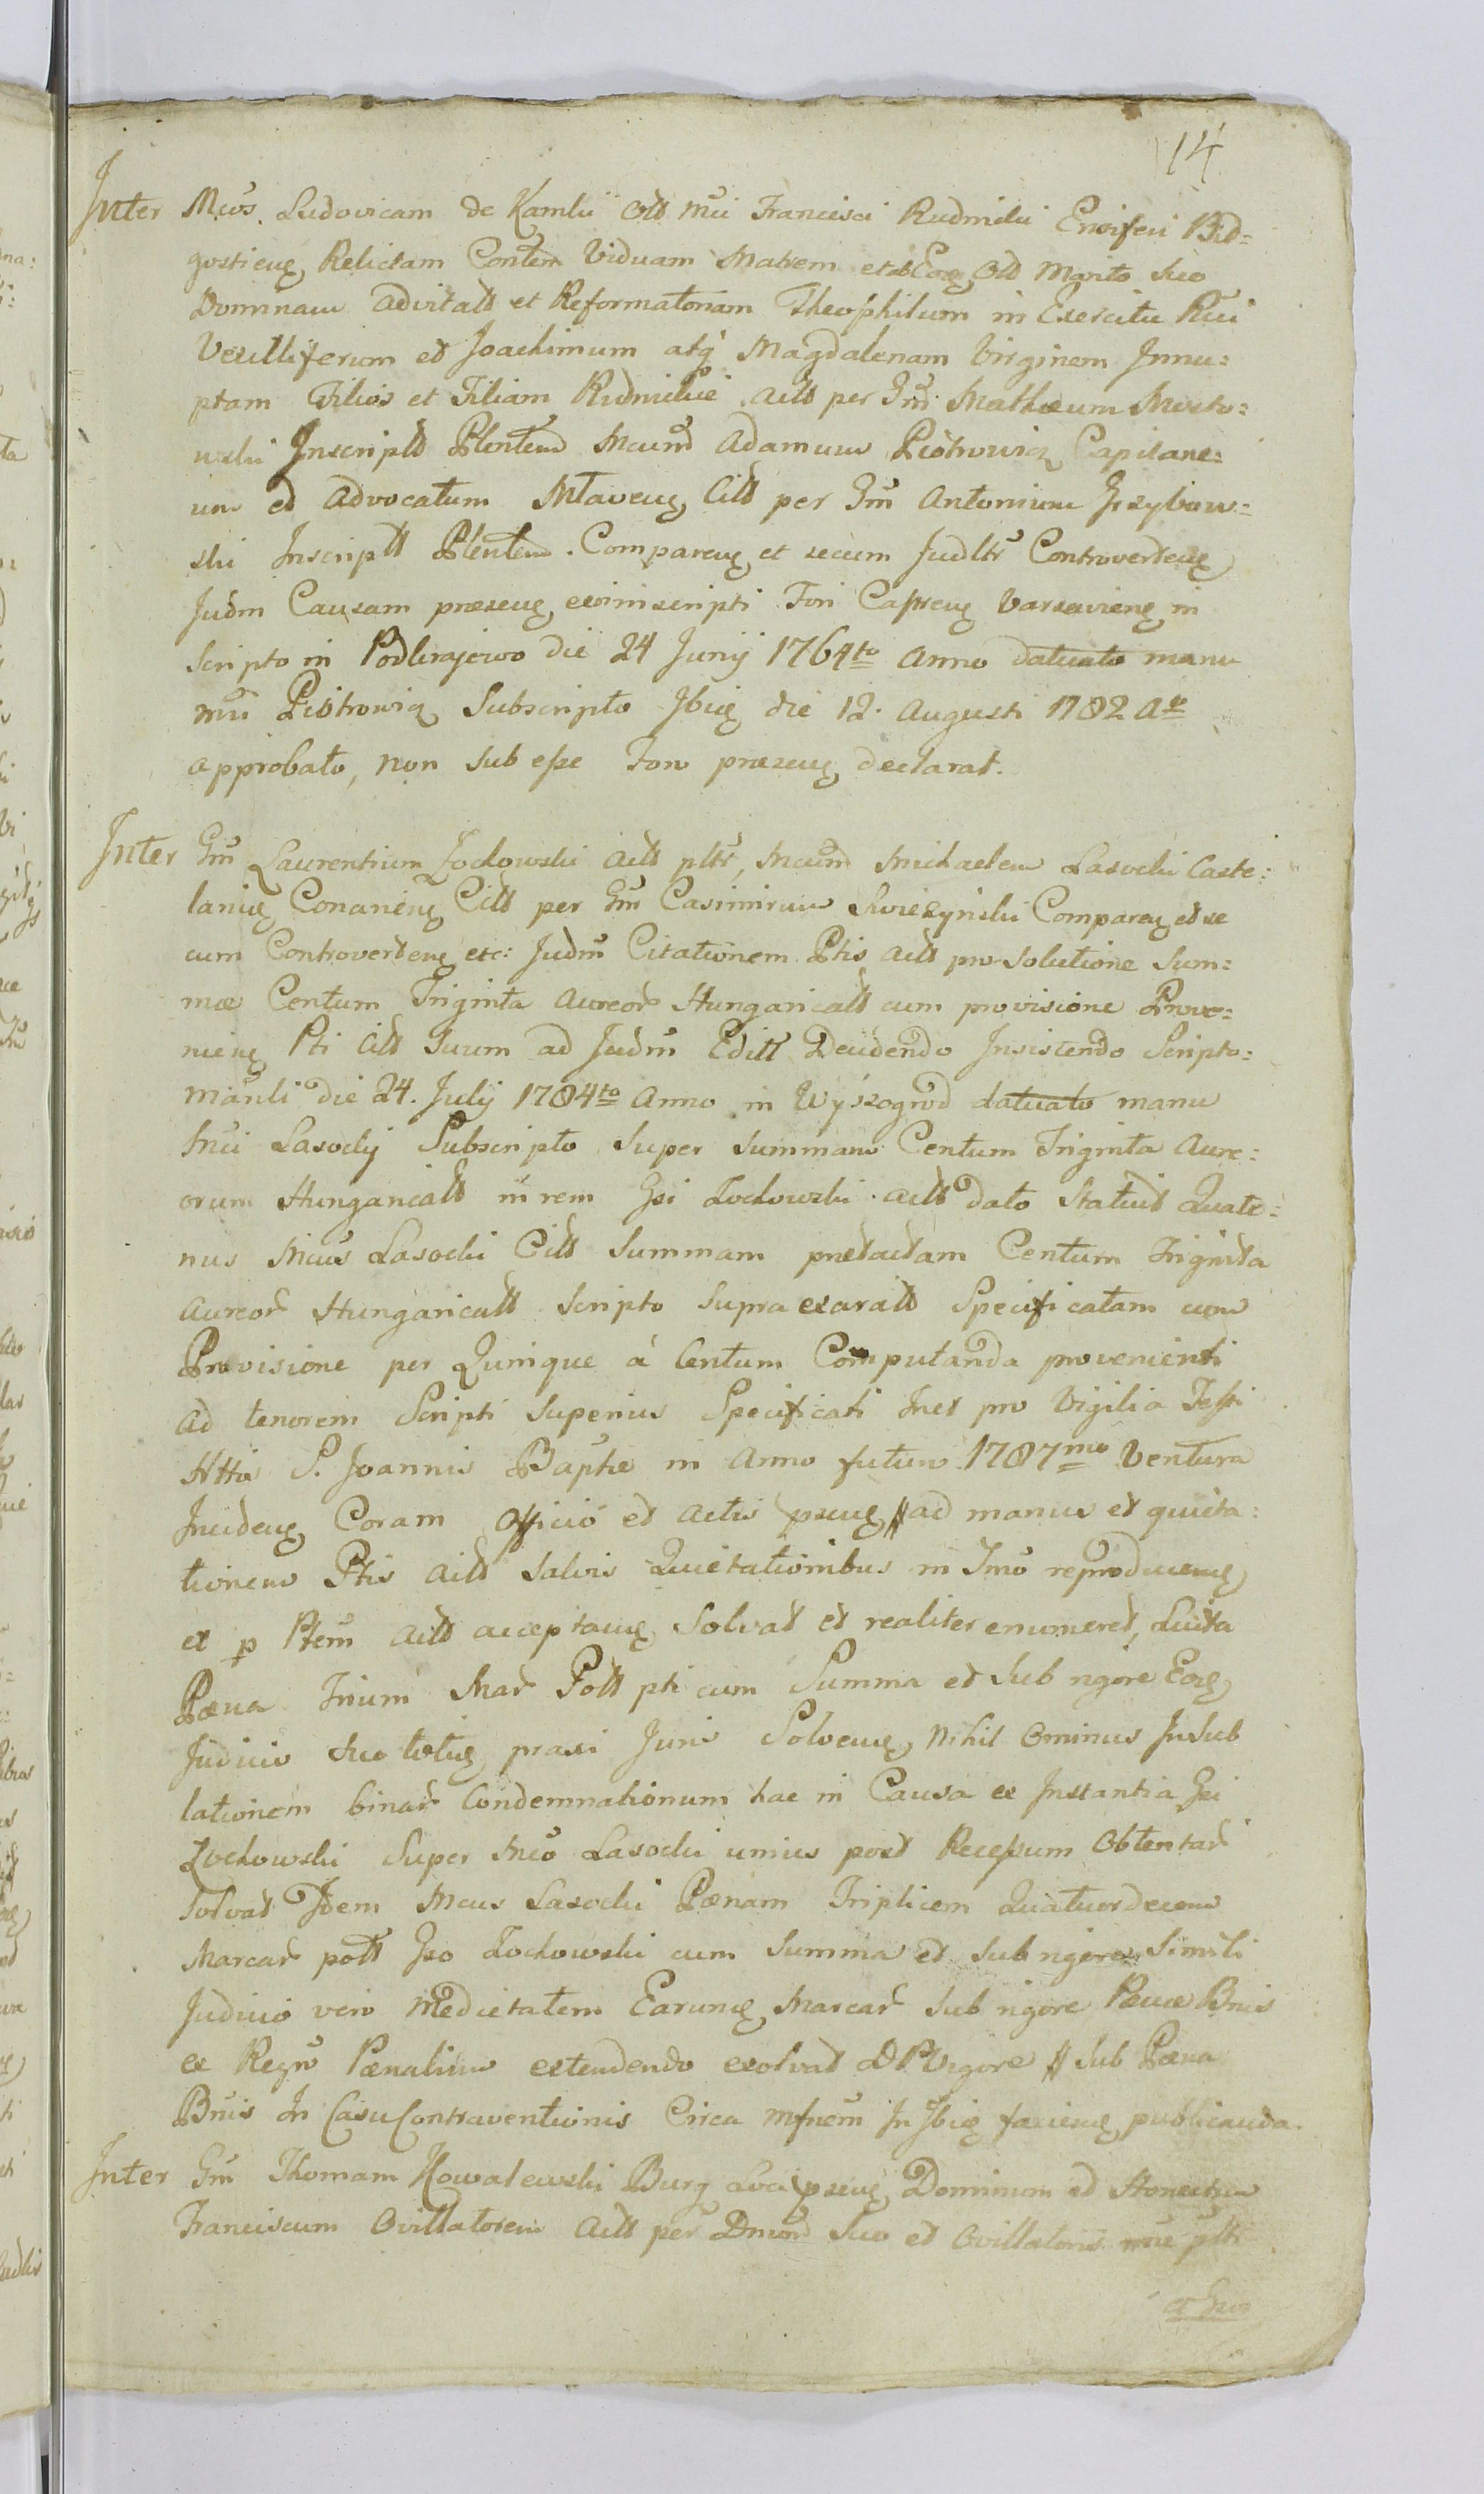 14
Inter Mcos Ludovicam de Kamlii Olt Mci Francisci Rudnicki Ensiferi Bid=
gostien Relictam Contem Viduam Matrem et ab Eog Olt Marito suo
Dominam advitalt et Reformatoriam Theophilum in Exercitu Rni
Vexilliferum et Joachimum atq Magdalenam Virginem Innu=
ptam Filios et Filiam Rudnickie Actt per Gm Mathæum
wski Inscriptt Plentem Mcum Adamum Piotrowicz Capitane=
um et Advocatum Mlaven Citt per Gm Antonium Grzybow=
ski Inscriptt Plentem. Comparen et secum Judltr Controverten
Judm Causam præsen exvi inscripti Fori Castren Varsavien in
Scripto in Podkrajewo die 24 Junij 1764to Anno datuato manu
Mci Piotrowicz Subscripto Ibid die 12. Augusti 1782 Ao
approbato, non subesse Foro præsen declarat.
Inter Gm Laurentium Zockowski Actt pltr, Mcum Michaelem Lasocki Caste=
lanid Conarien Citt per Gm Casimirum Swiezynski Comparen et se
cum Controverten etc: Judm Citationem Ptis Actt pro solutione Sum=
mæ Centum Triginta Aureor Hungaricalt cum provisione Prove=
nien Pti Citt Suum ad Judm Editt Decidendo Insistendo Scripto=
manli die 24. Julij 1784to Anno in Wyszogrod datuato manu
Mci Lasockij Subscripto super summam Centum Triginta Aure=
orum Hungaricalt in rem Gsi Zockowski Actt dato Statuit Quate=
nus Mcus Lasocki Citt Summam prætactam Centum Triginta
Aureor Hungaricalt scripto supra exaratt Specificatam cum
Provisione per Quinque à Centum Computanda provenienti
ad tenorem Scripti superius Specificati Inet pro Vigilia Festi
Ntta S. Joannis Baptæ in Anno futuro 1787mo Ventura
Inciden Coram Officio et Actis psen ad manus et quieta=
tionem Ptis Actt salvis Quietationibus in Tmo reproducen
et p Ptem Actt acceptan Solvat et realiter enumeret, Luita
Pæna Trium Mar Poll pti cum Summa et sub rigore Eog
Judicio suo totid praxi Juris Solven, Nihil Ominus In sub
lationem binar Condemnationum hac in Causa ex Instantia Gsi
Zockowski super Mco Lasocki unius post Recessum Obtentar
Solvat Idem Mcus Lasocki Pænam Triplicem Quatuordecem
Marcar poll Gso Zockowski cum Summa et sub rigore Simili
Judicio vero Medietatem Earund Marcar sub rigore Pænæ Bnis
ex Regro Pænalium extendendo exolvat D P Vigore sub Pæna
Bnis In Casu Contraventionis Circa Mfnem In Ibid facien publicanda.
Inter Gm Thomam Kowalewski Burg Loci psen Dominum et Honestum
Franciscum Ovillatorem Actt per Dnum suo et Ovillatoris nne pltr
a Gso